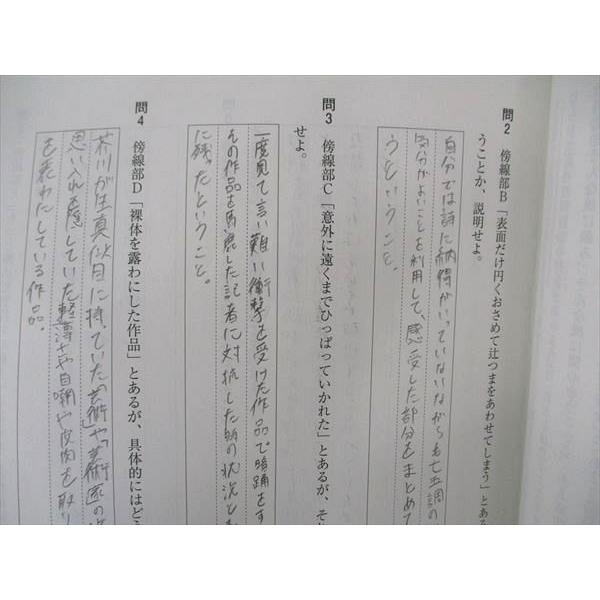 問2 傍線部B「表面だけ円くおさめて辻つまをあわせてしまう」とある
うことか、説明せよ。
自分では詩に納得がいっていないながらも七五調の
気分がよいことを利用して、感受した部分をまとめて
うということ。
問3 傍線部C「意外に遠くまでひっぱっていかれた」とあるが、それ
せよ。
一度見て言い難い衝撃を受けた作品で暗踊をす
その作品を
した記者に対抗した
の状況と
に残ったということ。
問4 傍線部D「裸体を露わにした作品」とあるが、具体的にはどう
芥川が生真似目に持っていた「芸術」や「芸術家の
思い入れを
していた軽薄さや自嘲や皮肉を取り
を表わにしている作品。